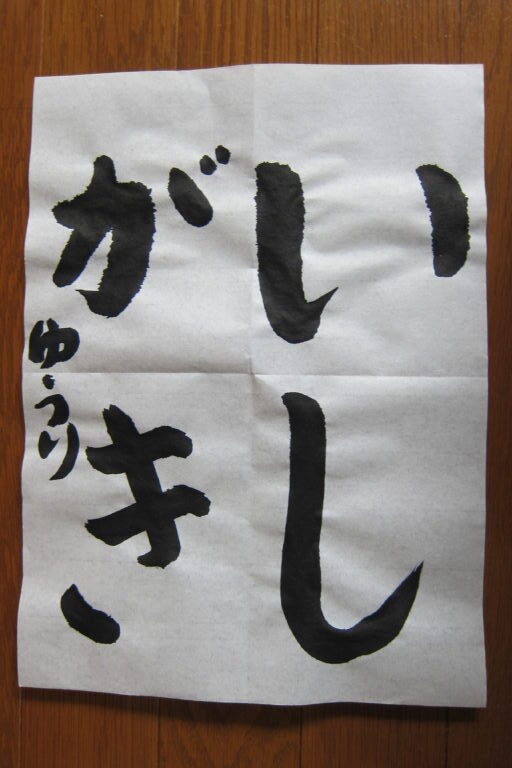 いし
がき
ゆうり